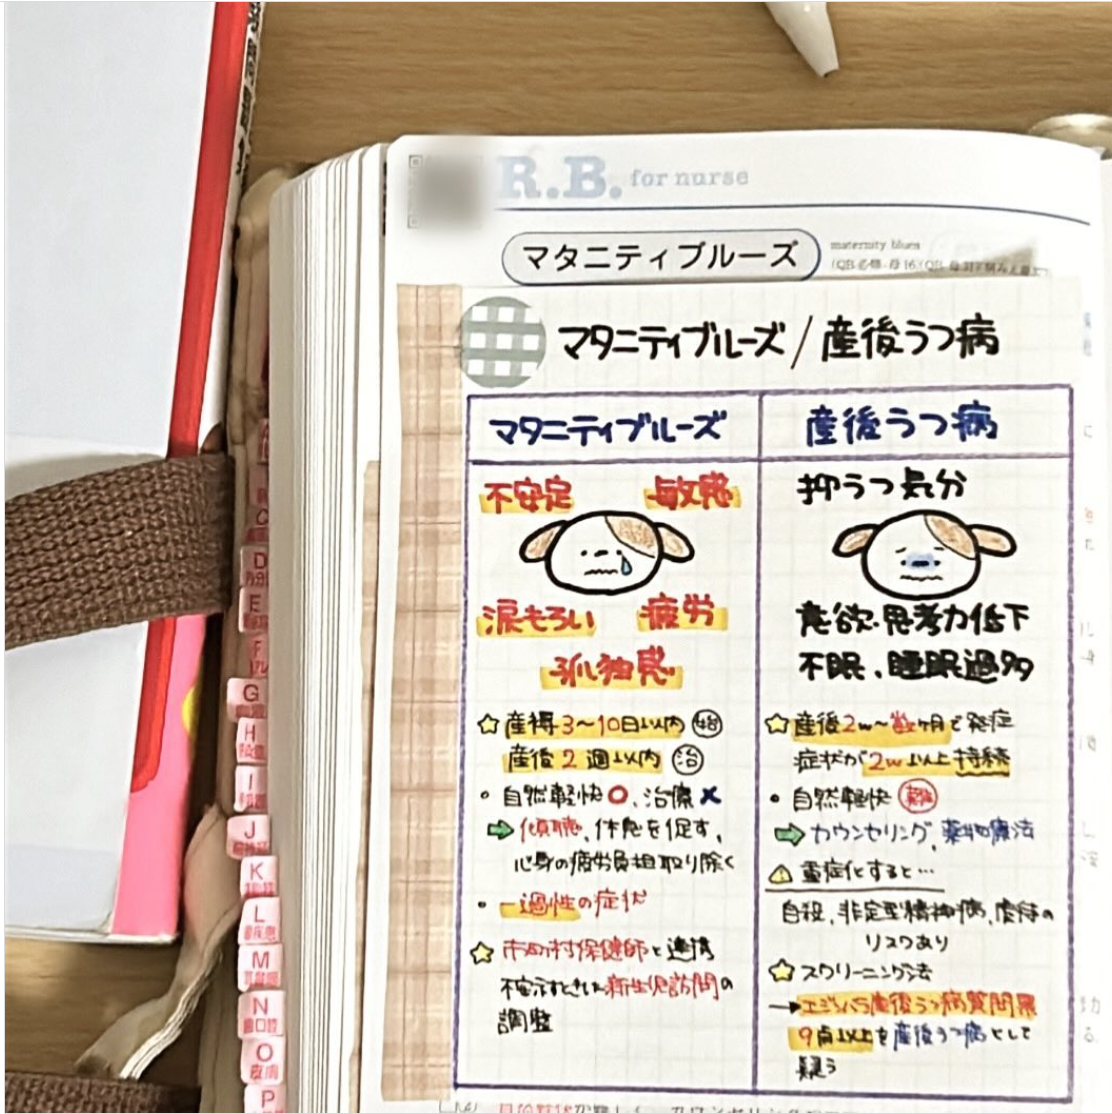 R.B. for nurse
マタニティブルーズ
maternity blues
マタニティブルーズ / 産後うつ病
マタニティブルーズ
不安定 敏感
涙もろい 疲労
孤独感
産褥3〜10日以内 始
産後2週以内 治
・自然軽快○、治療×
⇒傾聴、休息を促す、
心身の疲労負担取り除く
・一過性の症状
☆市町村保健師と連携
新生児訪問の
調整
産後うつ病
抑うつ気分
意欲・思考力低下
不眠、睡眠過多
☆産後2w〜数ヶ月で発症
症状が2w以上持続
・自然軽快
⇒カウンセリング、薬物療法
⚠重症化すると…
自殺、非定型精神病、虐待の
リスクあり
☆スクリーニング法
→エジンバラ産後うつ病質問票
9点以上を産後うつ病として
疑う
D
E
F
G
H
I
J
K
L
M
N
O
皮膚
P